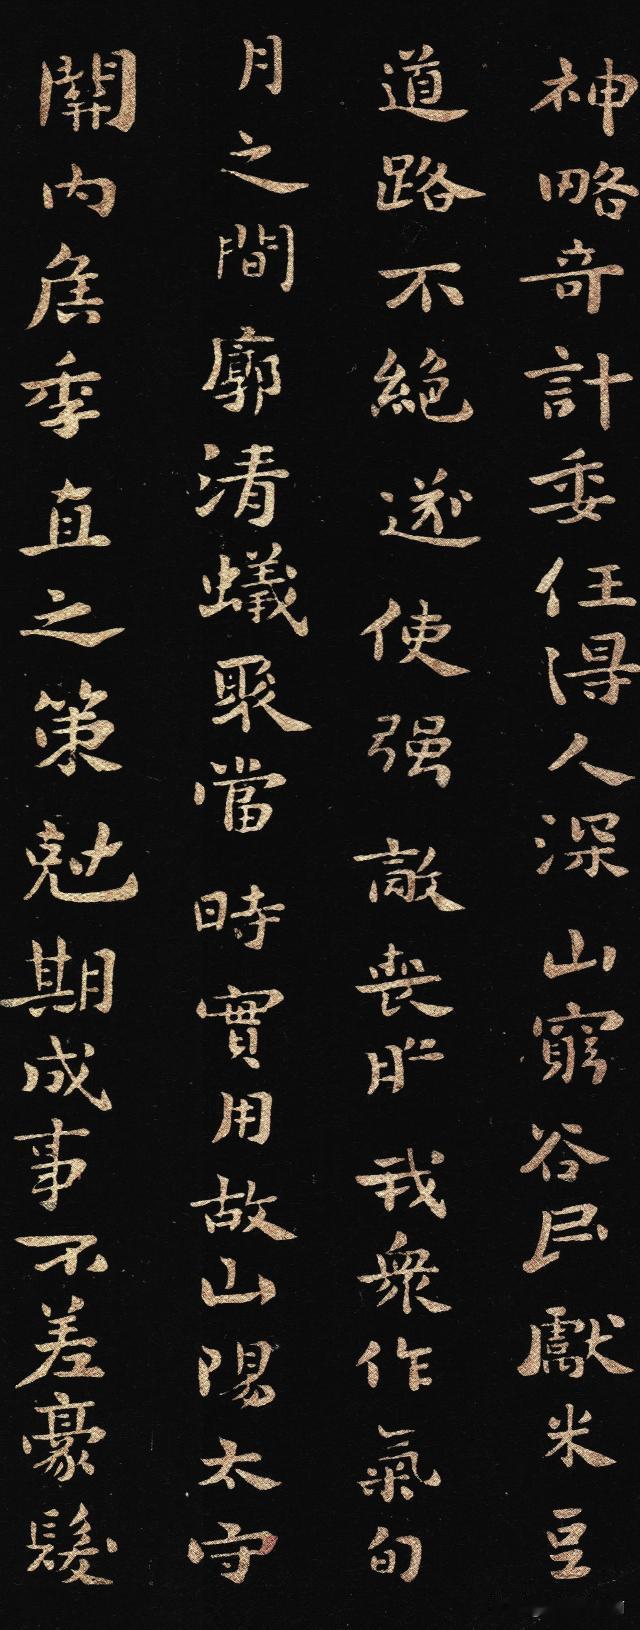 神略奇計委任得人深山窮谷民獻米豆
道路不絕遂使強敵喪膽我衆作氣旬
月之間廓清蟻聚當時實用故山陽太守
關內侯季直之策尅期成事不差豪髮